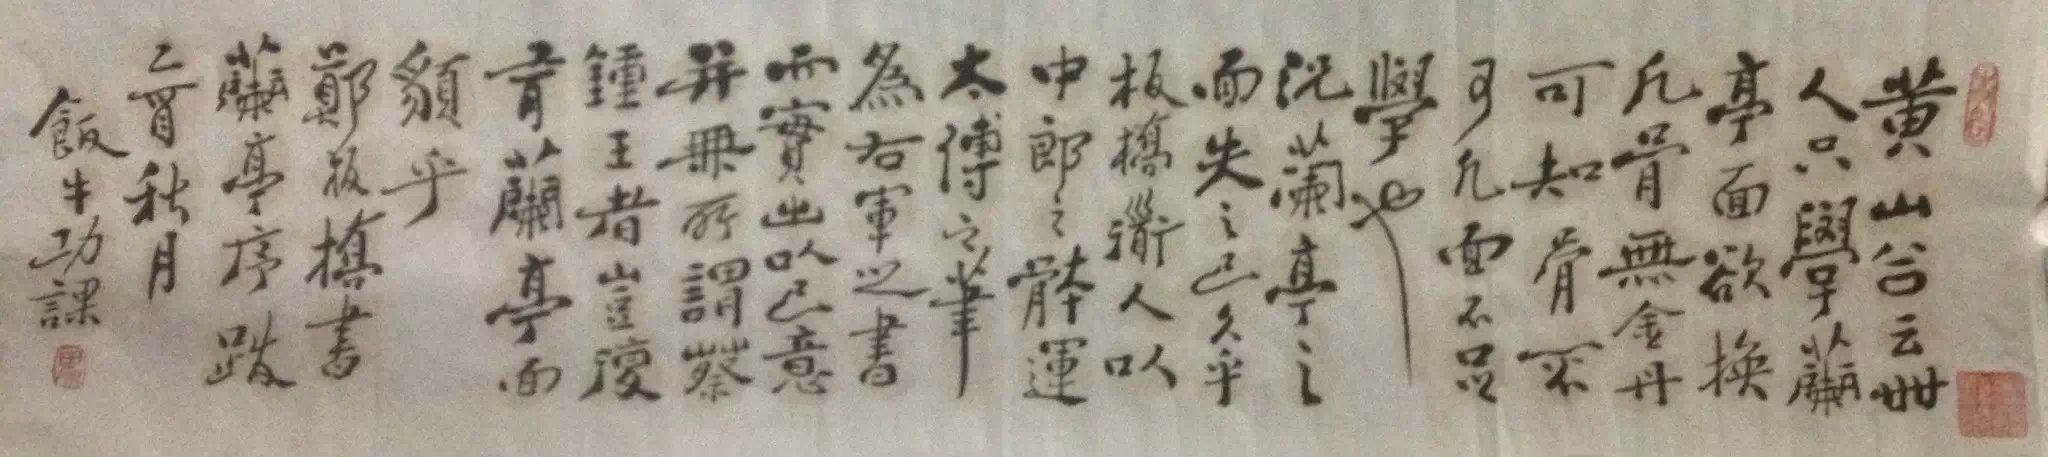 黄山谷云世
人只學蘭
亭面欲換
凡骨無金丹
可知骨不
可凡面不足
學也
況蘭亭之
面失之已久乎
板橋道人以
中郎之體運
太傅之筆
為右軍之書
而實出以己意
并無所謂蔡
鍾王者豈復
有蘭亭面
貌乎
鄭板橋書
蘭亭序跋
乙酉秋月
飯牛功課